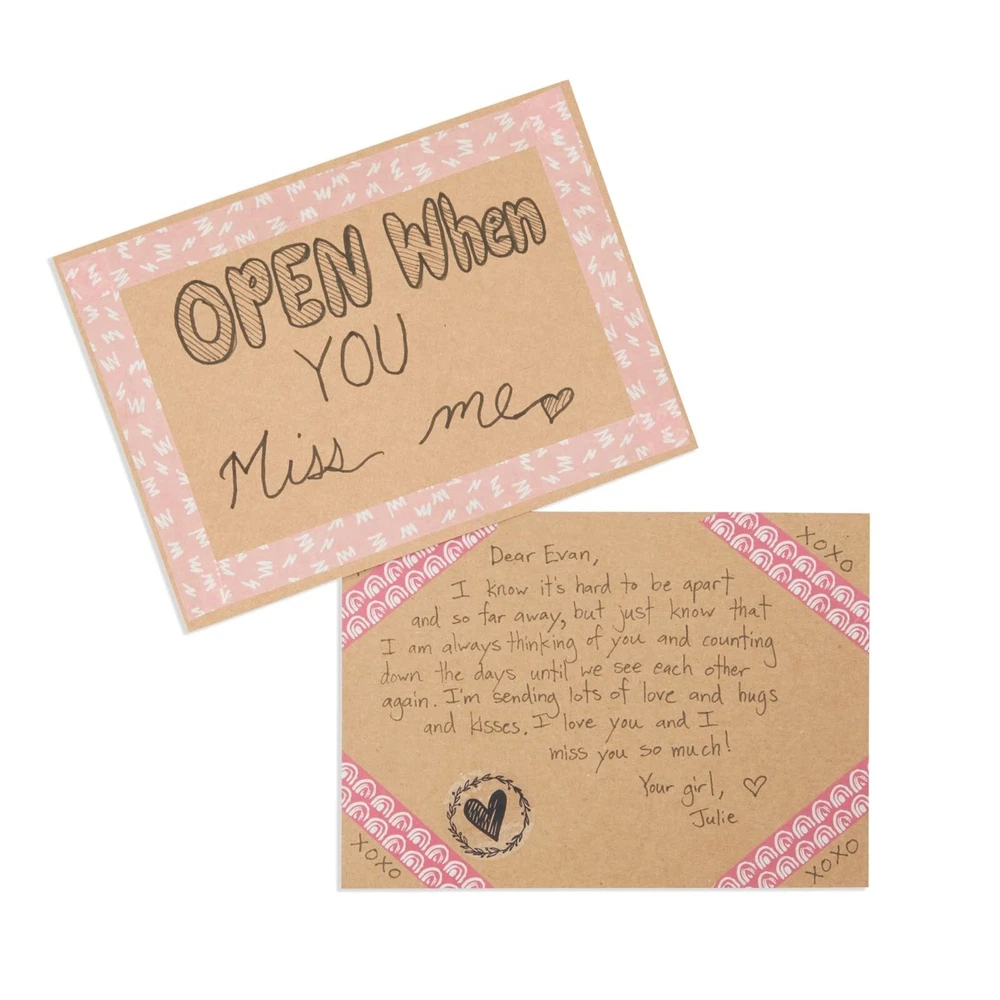 OPEN When
YOU
Miss me
Dear Evan,
I know it's hard to be apart
and so far away, but just know that
I am always thinking of you and counting
down the days until we see each other
again. I'm sending lots of love and hugs
and kisses. I love you and I
miss you so much!
Your girl,
Julie
XOXO
XOXO
XOXO